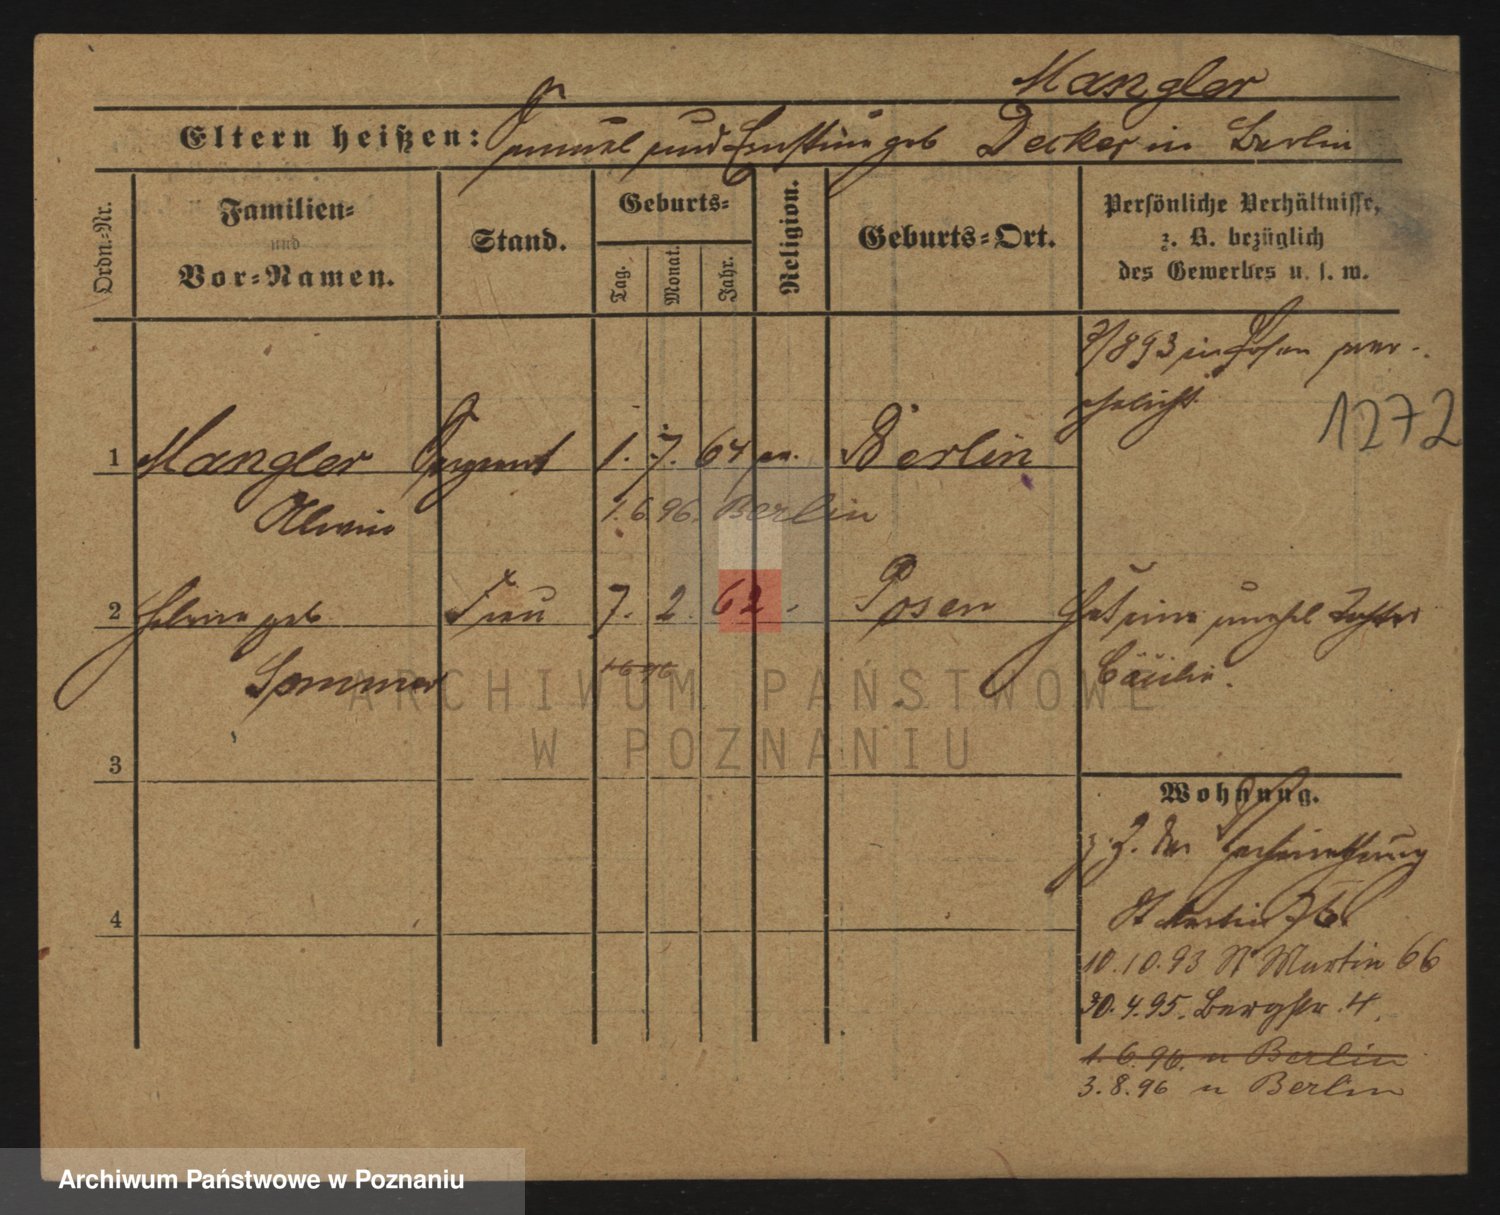 Mangler
Eltern heißen: Samuel und Ernstine geb Decker in Berlin
Ordn.-Nr.
Familien-
und
Vor-Namen.
Stand.
Geburts-
Tag.
Monat.
Jahr.
Religion.
Geburts-Ort.
Persönliche Verhältnisse,
z. B. bezüglich
des Gewerbes u. s. w.
9/893 in Posen ver-
ehelicht
1272
1 Mangler Sergeant 1. 7. 64 ev. Berlin
Alwin 1.6.96. Berlin
2 Helene geb Frau 7. 2. 62 - Posen Hat eine unehel Tochter
Sommer 1.6.96 Cäcilie.
ARCHIWUM PAŃSTWOWE
W POZNANIU
3
Wohnung.
z. Z. der Verheirathung
4
St Martin 76.
10.10.93 St Martin 66
30.4.95. Bergstr. 4.
1.6.96. n Berlin
3.8.96 n Berlin
Archiwum Państwowe w Poznaniu